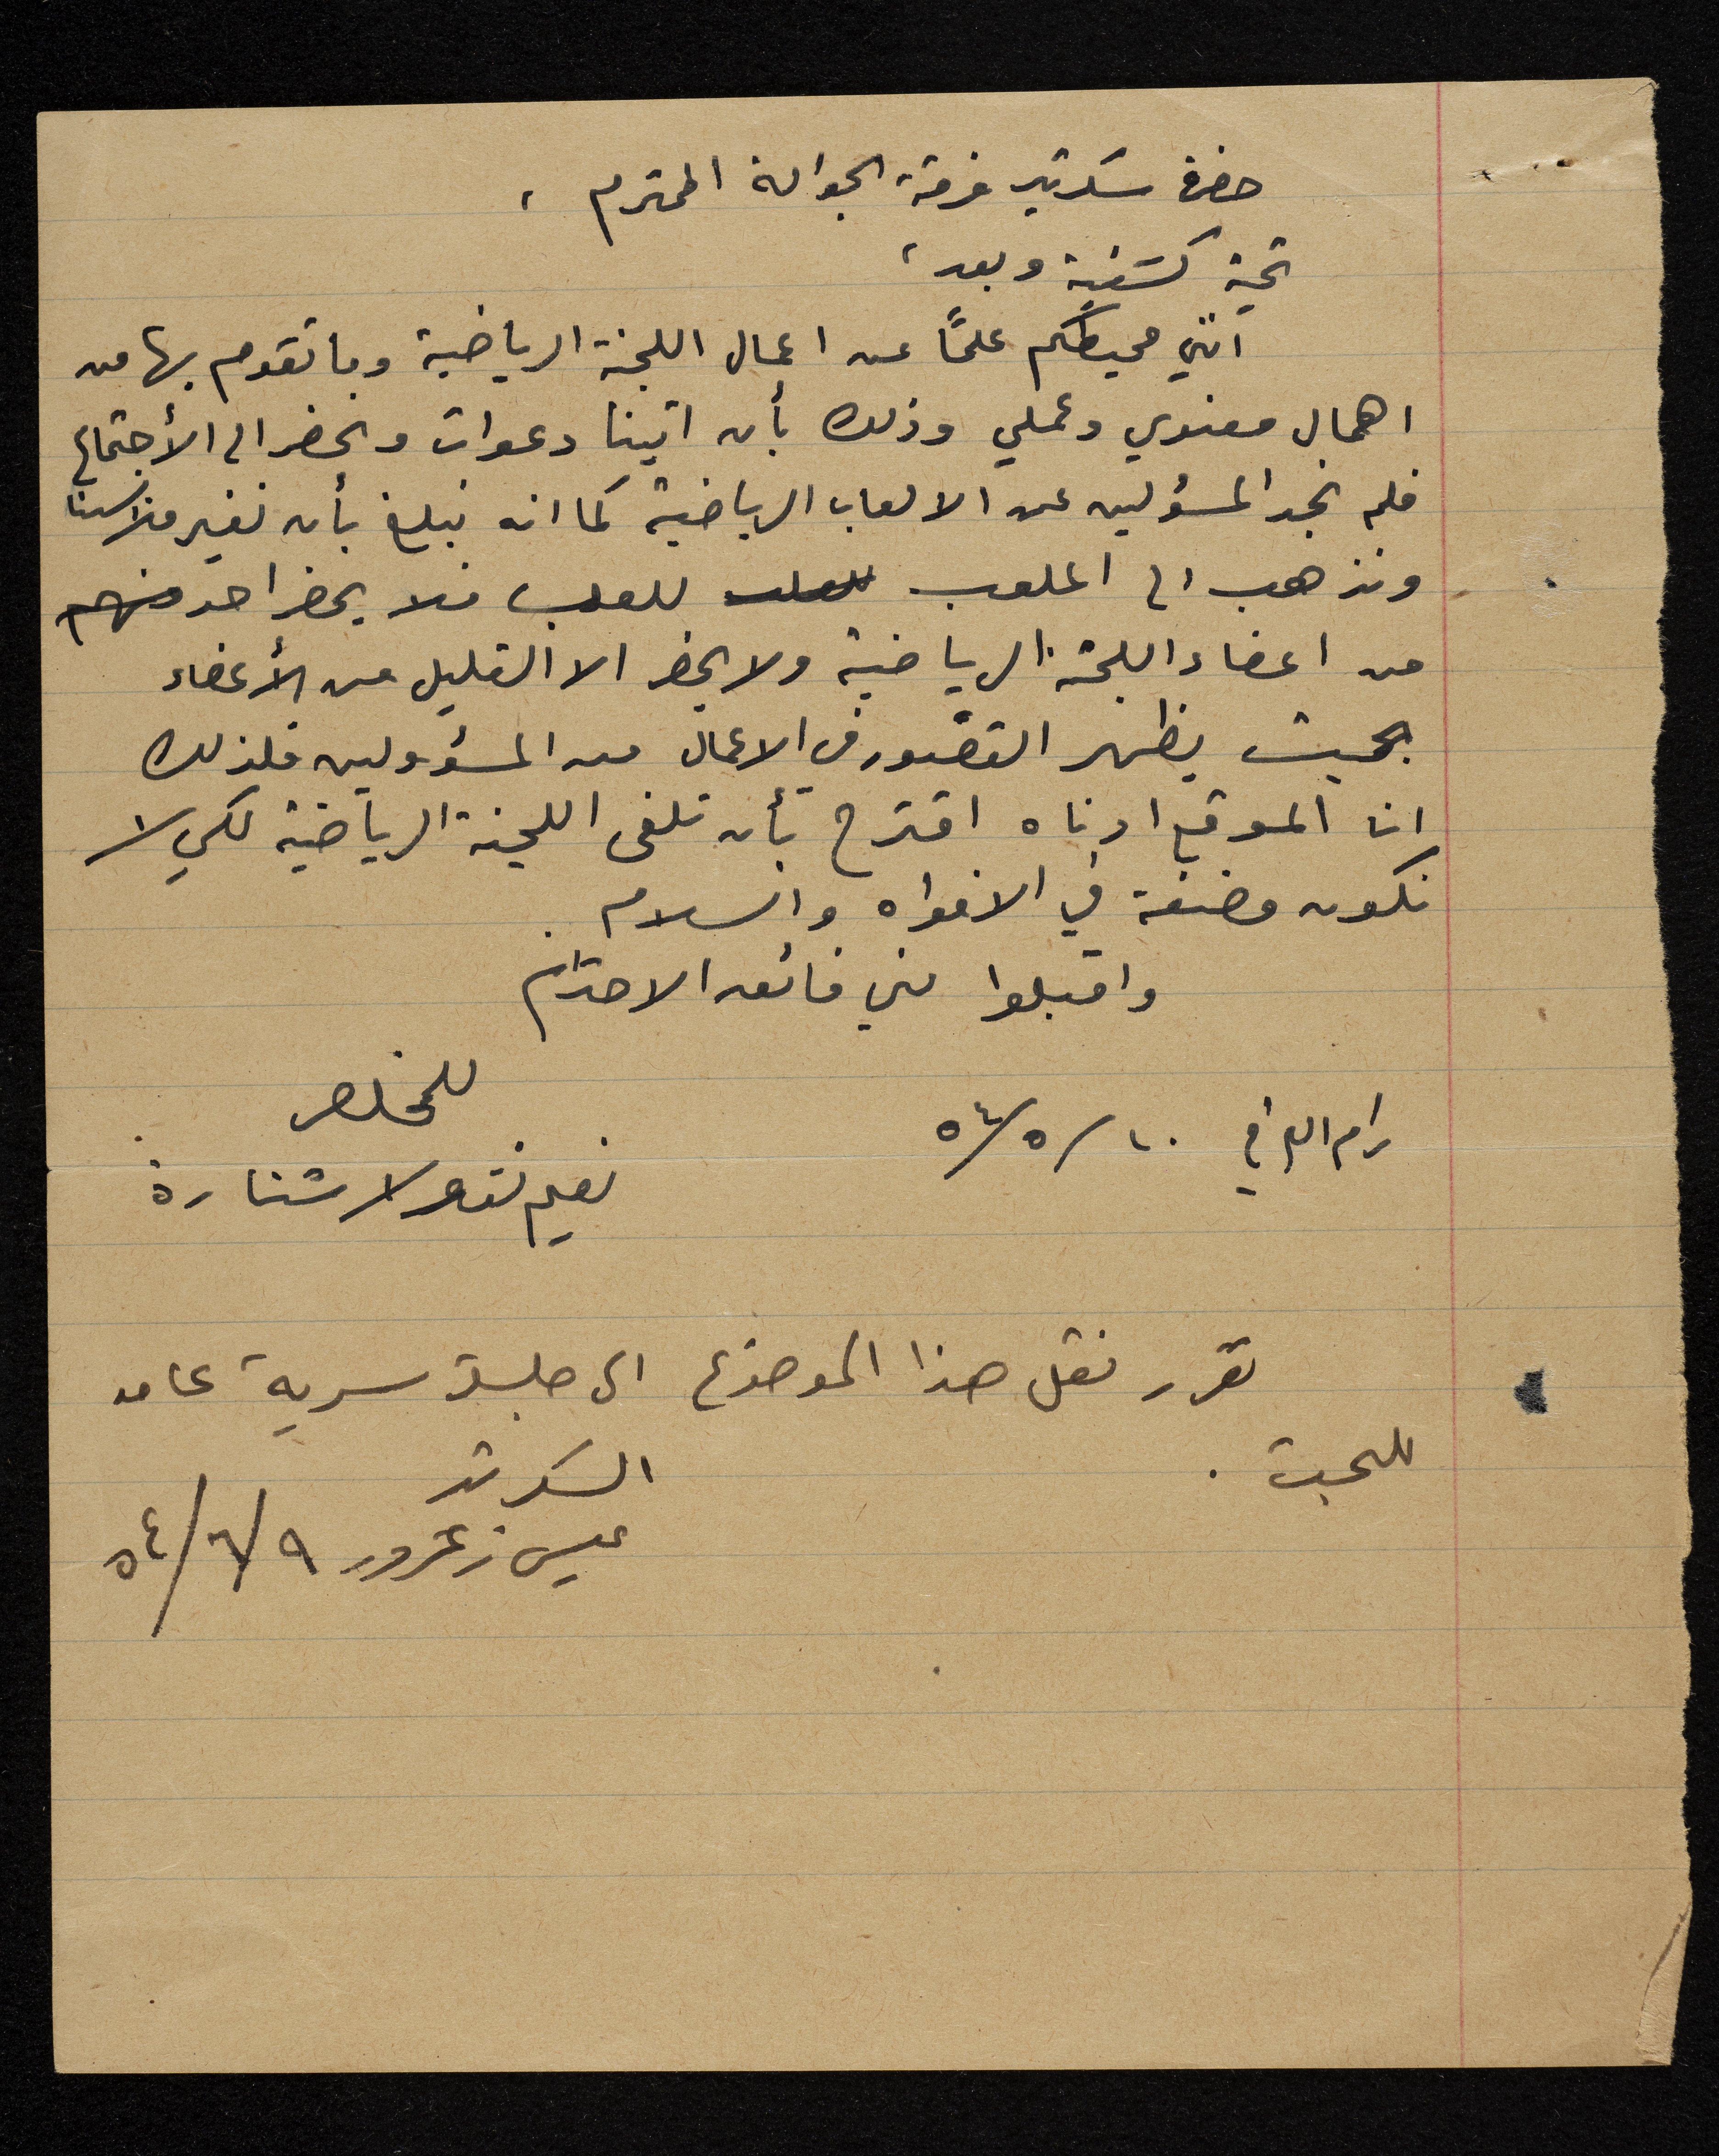 حضرة سكرتير فرقة الجوالة المحترم ،
تحية كشفية وبعد ،
انني محيطكم علمًا عن اعمال اللجنة الرياضية وما تقوم بها من
اهمال معنوي وعملي وذلك بأن اتينا دعوات ونحضر الى الأجتماع
فلم نجد المسؤلين عن الالعاب الرياضية كما انه نبلغ بأن نغير ملابسنا
ونذهب الى الملعب للعب فلا يحضر احد منهم
من اعضاء اللجنة الرياضية ولا يحضر الا القليل من الأعضاء
بحيث يظهر القصور في الاعمال من المسؤولين فلذلك
انا الموقع ادناه اقترح بأن تلغى اللجنة الرياضية لكي لا
نكون مضغة في الافواه والسلام .
واقبلوا مني فائق الاحترام
المخلص
رام الله في ١٠/٥/٥٤
نعيم نقولا شنارة
تقرر نقل هذا الموضوع الى جلسة سرية عامه
للبحث .
السكرتير
عيسى زعرور ٩/٦/٥٤